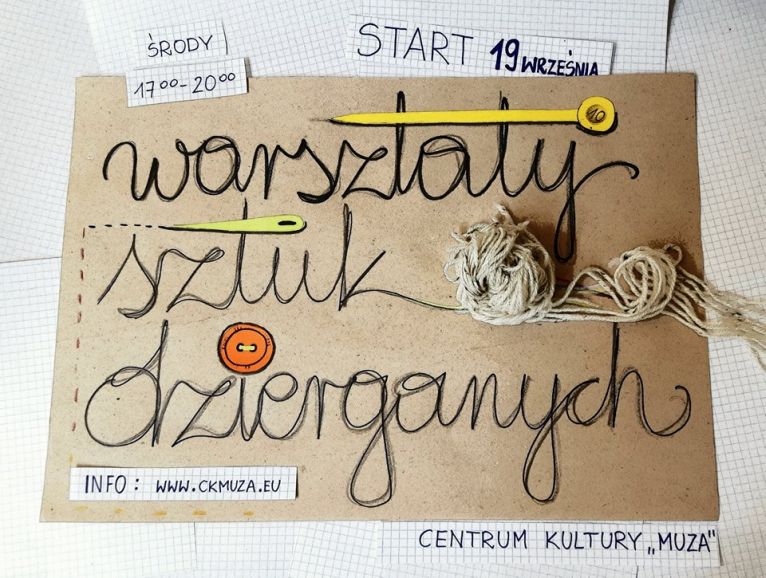 ŚRODY
17⁰⁰-20⁰⁰
START 19 WRZEŚNIA
10
warsztaty
sztuk
dzierganych
INFO: WWW.CKMUZA.EU
CENTRUM KULTURY „MUZA"